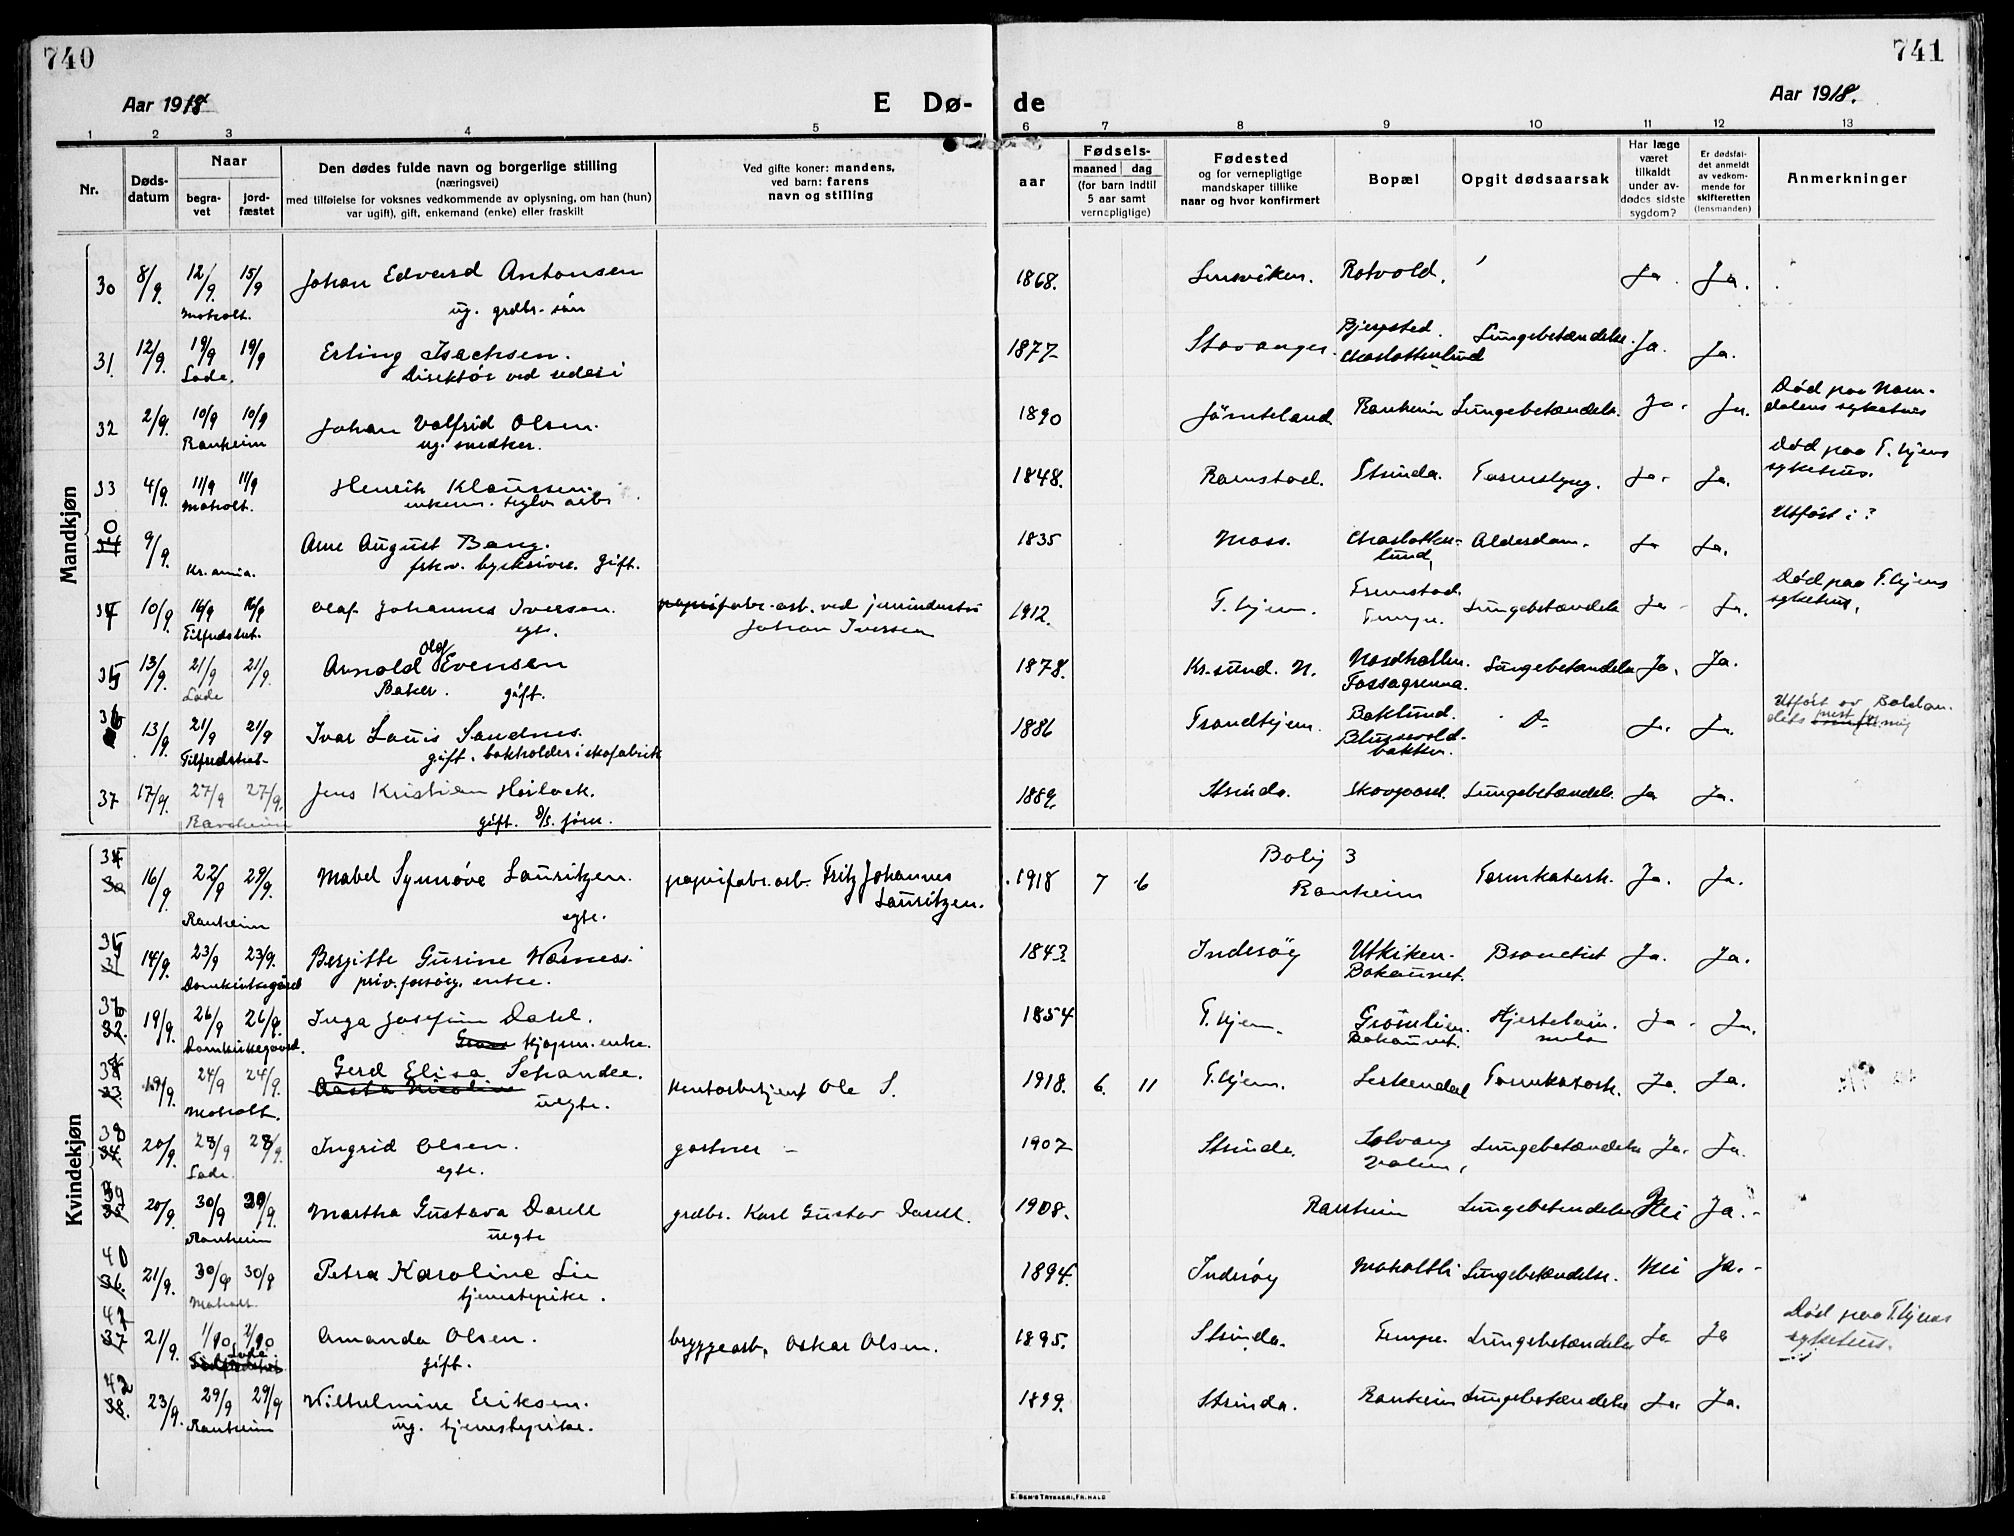 740
741
Aar 1918
E Dø-
de
Aar 1918.
1 2 3 4 5 6 7 8 9 10 11 12 13
Nr.
Døds-
datum
Naar
begra-
vet
jord-
fæstet
Den dødes fulde navn og borgerlige stilling
(næringsvei)
med tilføielse for voksnes vedkommende av oplysning, om han (hun)
var ugift), gift, enkemand (enke) eller fraskilt
Ved gifte koner: mandens,
ved barn: farens
navn og stilling
aar
Fødsels-
maaned dag
(for barn indtil
5 aar samt
vernepligtige)
Fødested
og for vernepligtige
mandskaper tillike
naar og hvor konfirmert
Bopæl
Opgit dødsaarsak
Har læge
været
tilkaldt
under av-
dødes sidste
sygdom?
Er dødsfal-
det anmeldt
av vedkom-
mende for
skifteretten
(lensmanden)
Anmerkninger
Mandkjøn
30 8/9. 12/9. 15/9 Johan Edvard Antonsen 1868. Rotvold. Ja. Ja.
Moholt. ug. grdbr. søn
31. 12/9. 19/9 19/9 Erling Isachsen. 1877 Stavanger. Bjerpsted. Lungebetændelse. Ja. Ja.
Lade. Direktør ved rederi Charlottenlund
32 2/9. 10/9 10/9 Johan Valfrid Olsen. 1890 Jämteland Ranheim Lungebetændelse. Ja. Ja. Død paa Nam-
dalens sykehus
Ranheim ug. snedker.
33 4/9. 11/9 11/9 Henrik Klaussen. 1848. Ramstad. Strinda. Ja. Ja. Død paa T.hjems
sykehus.
Moholt. enkem. teglv. arb.
9/9. Arne August Bang. 1835 Moss. Charlotten-
lund, Alderdom. Ja Ja. Utført i ?
Kr.ania. gift.
34 10/9. 16/9 16/9 Olaf Johannes Iversen. arb. ved jernindustri 1912. T.hjem. Tempe. Lungebetændelse Ja Ja. Død paa T.hjems
sykehus.
Tilfredshet. egte. Johan Iversen
35 13/9. 21/9 21/9. Arnold Olaf Evensen 1878. Kr.sund. N. Lungebetændelse Ja. Ja.
Lade Baker. gift. Fossagrenna.
36 13/9. 21/9 21/9 Ivar Louis Sandnes. 1886 Trondhjem. Baklund. Do Ja. Ja. Utført av Baklan-
dets prest
Tilfredshet gift. bokholder i skofabrik Blussuvold-
bakken.
37 17/9. 27/9 27/9. Jens Kristian 1889. Strinda. Skovgaard. Lungebetændelse. Ja Ja.
Ranheim gift.
Kvindekjøn
34 30 16/9 22/9 29/9. Mabel Synnøve Lauritzen. papirfabr. arb. Fritz Johannes
Lauritzen. 1918 7 6 Bolig 3
Ranheim Tarmkatarh. Ja. Ja.
Ranheim egte.
35 31 14/9. 23/9 23/9. Bergitte Gurine Wærness. 1843. Inderøy Utkiken. Bronchit Ja. Ja.
Domkirkegård priv. forsørg. enke. Bakaunet.
36 32. 19/9. 26/9 26/9. Inga Josefine Dahl. 1854 T.hjem. Grønlien. Hjertelam. Ja. Ja.
Domkirkegaard. kjøpm. enke. Bakaunet. melse
33 19/9. 24/9 24/9. Gerd Elisa Schanche. kontorbetjent Ole S. 1918. 6. 11 T.hjem. Lerkendal Tarmkatarh. Ja. Ja.
Moholt. Aasta Nicoline uegte.
38 34. 20/9. 28/9 28/9. Ingrid Olsen. gartner 1907 Strinda. Solvang Lungebetændelse Ja. Ja.
Lade. egte.
39 35 20/9. 30/9 30/9. Martha Gustava Darell grdbr. Karl Gustav Darell. 1908. Ranheim Lungebetændelse Nei Ja.
Ranheim uegte
40 36. 21/9. 30/9 30/9 Petra Karoline Lie 1894. Inderøy Moholtli Lungebetændelse. Nei Ja.
Moholt. tjenestepike.
41 37 21/9. 1/10 2/10 Amanda Olsen. bryggearb. Oskar Olsen. 1895. Strinda. Tempe. Lungebetændelse Ja Ja Død paa T.hjems
sykehus.
Lade gift.
42 38. 23/9. 29/9 29/9 Wilhelmine Eriksen. 1899. Strinda. Ranheim Lungebetændelse Ja. Ja.
Ranheim ug. tjenestepike.
E. SEM'S TRYKKERI, FR.HALD